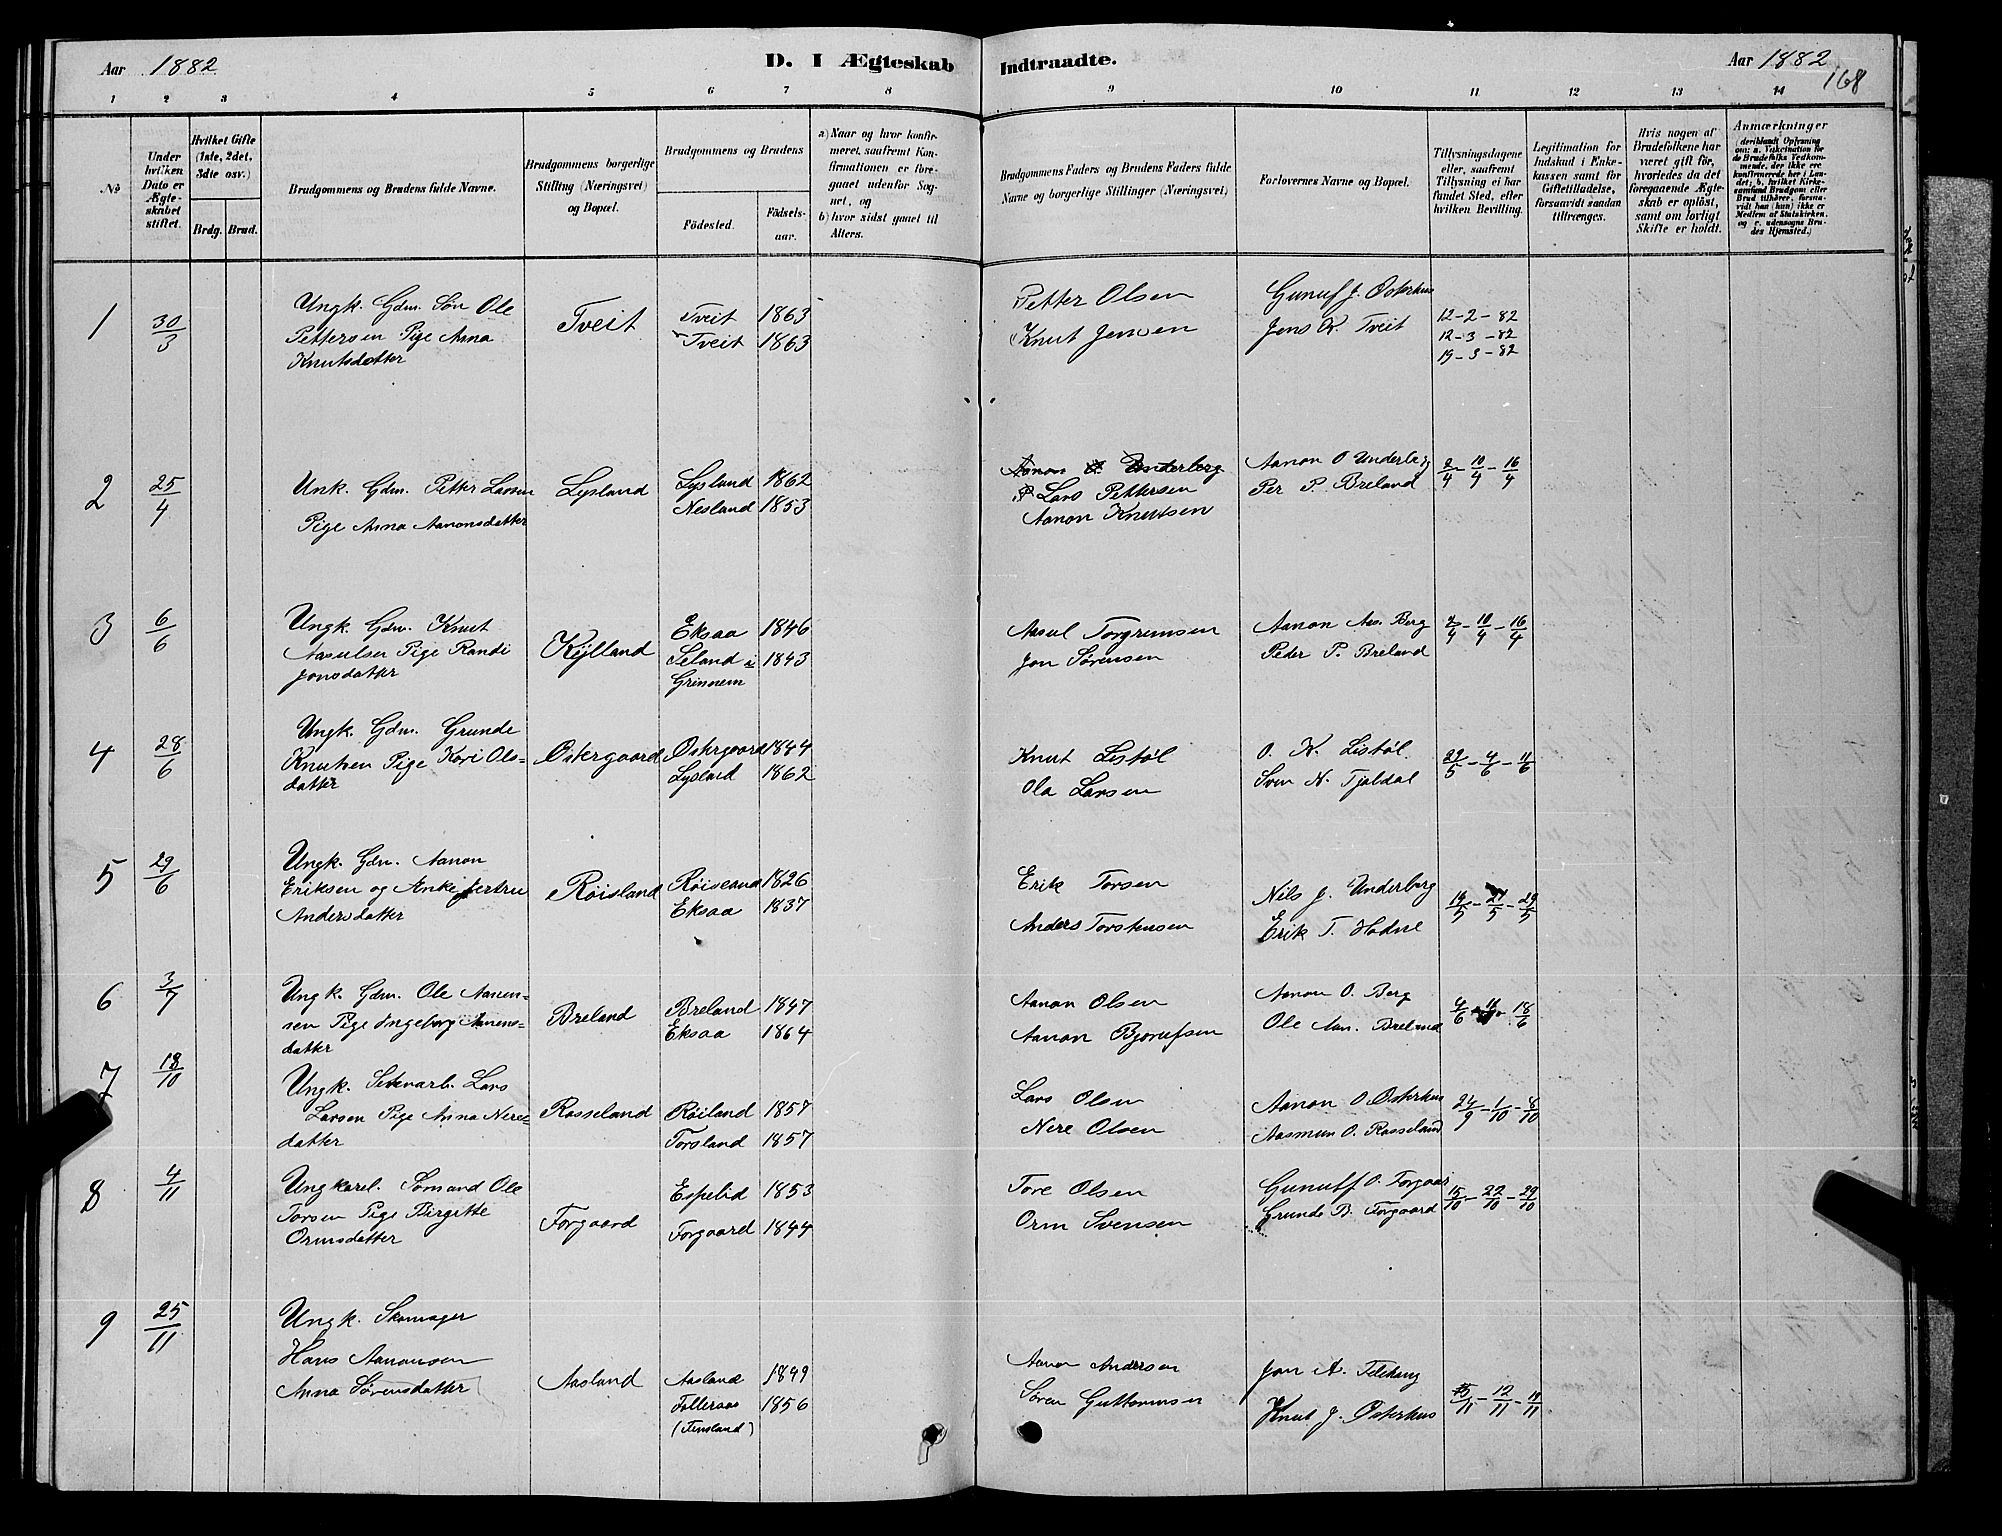 Aar 1882 D. I Ægteskab Indtraadte. Aar 1882
168
1 2 3 4 5 6 7 8 9 10 11 12 13 14
No
Under hvilken Dato er Ægteskabet stiftet.
Hvilket Gifte (1ste, 2det, 3die osv.)
Brdg. Brud.
Brudgommens og Brudens fulde Navne.
Brudgommens borgerlige Stilling (Næringsvei) og Bopæl.
Brudgommens og Brudens
Fødested. Fødselsaar.
a) Naar og hvor konfirmeret, saafremt Konfirmationen er foregaaet udenfor Sognet, og
b) hvor sidst gaaet til Alters.
Brudgommens Faders og Brudens Faders fulde Navne og borgerlige Stillinger (Næringsvei)
Forlovernes Navne og Bopæl.
Tillysningsdagene eller, saafremt Tillysning ei har fundet Sted, efter hvilken Bevilling.
Legitimation for Indskud i Enkekassen samt for Giftetilladelse, forsaavidt saadan tiltrænges.
Hvis nogen af Brudefolkene har været gift før, hvorledes da det foregaaende Ægteskab er opløst, samt om lovligt Skifte er holdt.
Anmærkninger (deriblandt Oplysning om: a. Vakcination for de Brudefolks Vedkommende, der ikke ere konfirmerede her i Landet; b. hvilket Kirkesamfund Brudgom eller Brud tilhører, forsaavidt han (hun) ikke er Medlem af Statskirken, og c. udensogns Brudes Hjemsted.)
1 30/3 Ungk. Gdm. Søn Ole Pettersen Pige Anna Knutsdatter
Tveit
Tveit 1863
Tveit 1863
Petter Olsen
Knut Jensen
Gunuf J. Østerhus
Jens K. Tveit
12-2-82
12-3-82
19-3-82
2 25/4 Unk. Gdm. Petter Larsen
Pige Anna Aanonsdatter
Lysland
Lysland 1862
Nesland 1853
Aanon O. Underberg
Lars Pettersen
Aanon Knutsen
Aanon O Underberg
Per P. Breland
2/4 - 10/4 - 16/4
3 6/6 Ungk. Gdm. Knut
Aasulsen Pige Randi
Jonsdatter
Kylland
Eksaa 1846
Seland i 1843
Grinnem
Aasul Torgrimsen
Jon Sørensen
Aanon Aas. Berg
Peder P. Breland
2/4 - 10/4 - 16/4
4 28/6 Ungk. Gdm. Grunde
Knutsen Pige Kari Ols-
datter
Østergaard
Østergaard 1844
Lysland 1862
Knut Listøl
Ola Larsen
O. K. Listøl
Sven N. Tjøldal
29/5 - 4/6 - 11/6
5 29/6 Ungk. Gdm. Aanon
Eriksen og Anke Jertru
Andersdatter
Røisland
Røiseland 1826
Eksaa 1837
Erik Torsen
Anders Torstensen
Nils J. Underberg
Erik T. Hodne
14/5 - 21/5 - 29/5
6 3/7 Ungk. Gdm. Ole Aanen-
sen Pige Ingeborg Aanens-
datter
Breland
Breland 1847
Eksaa 1864
Aanon Olsen
Aanon Bjorufsen
Aanon O. Berg
Ole Aan. Breland
4/6 - 11/6 - 18/6
7 18/10 Ungk. Lars
Larsen Pige Anna Neres-
datter
Rosseland
Røiland 1857
Torsland 1857
Lars Olsen
Nere Olsen
Aanon O. Østerhus
Aasmun O. Rosseland
24/9 - 1/10 - 8/10
8 4/11 Ungkarel. Sømand Ole
Torsen Pige Birgitte
Ormsdatter
Forgaard
Espelid 1853
Forgaard 1844
Tore Olsen
Orm Svensen
Gunulf O. Forgaar
Grunde B. Forgaard
15/10 - 22/10 - 29/10
9 25/11 Ungk. Skomager
Hans Aanonsen
Anna Sørensdatter
Aasland
Aasland 1849
Folleraas 1856
(Finsland)
Aanon Andersen
Søren Guttormsen
Jon A.
Knut J. Østerhus
5/11 - 12/11 - 19/11